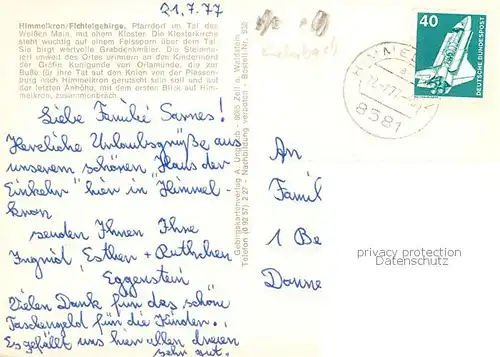 21.7.77
Himmelkron/Fichtelgebirge. Pfarrdorf im Tal des
Weißen Main, mit ehem. Kloster. Die Klosterkirche
steht wichtig auf einem Felssporn über dem Tal.
Sie birgt wertvolle Grabdenkmäler. Die Steinmar-
tern unweit des Ortes erinnern an den Kindermord
der Gräfin Kunigunde von Orlamünde, die zur
Buße für ihre Tat auf den Knien von der Plassen-
burg nach Himmelkron gerutscht sein soll und auf
der letzten Anhöhe, mit dem ersten Blick auf Him-
melkron, zusammenbrach.
Liebe Familie Sarnes!
Herzliche Urlaubsgrüße aus
unserem schönen "Haus der
Einkehr" hier in Himmel-
kron
senden Ihnen Ihre
Ingrid Esther + Ruthchen
Eggenstein
Vielen Dank für das schöne
Taschengeld für die Kinder.
Es gefällt uns hier allen dreien
sehr gut.
Gebirgskartenverlag A. 8665 Zell a. Waldstein
Telefon (0 92 57) 2 27 - Nachbildung verboten - Bestell Nr. 938
HIMMEL
21.-7.77
8581
40
DEUTSCHE BUNDESPOST
An
Famil
1 Be
Donne
privacy protection
Datenschutz